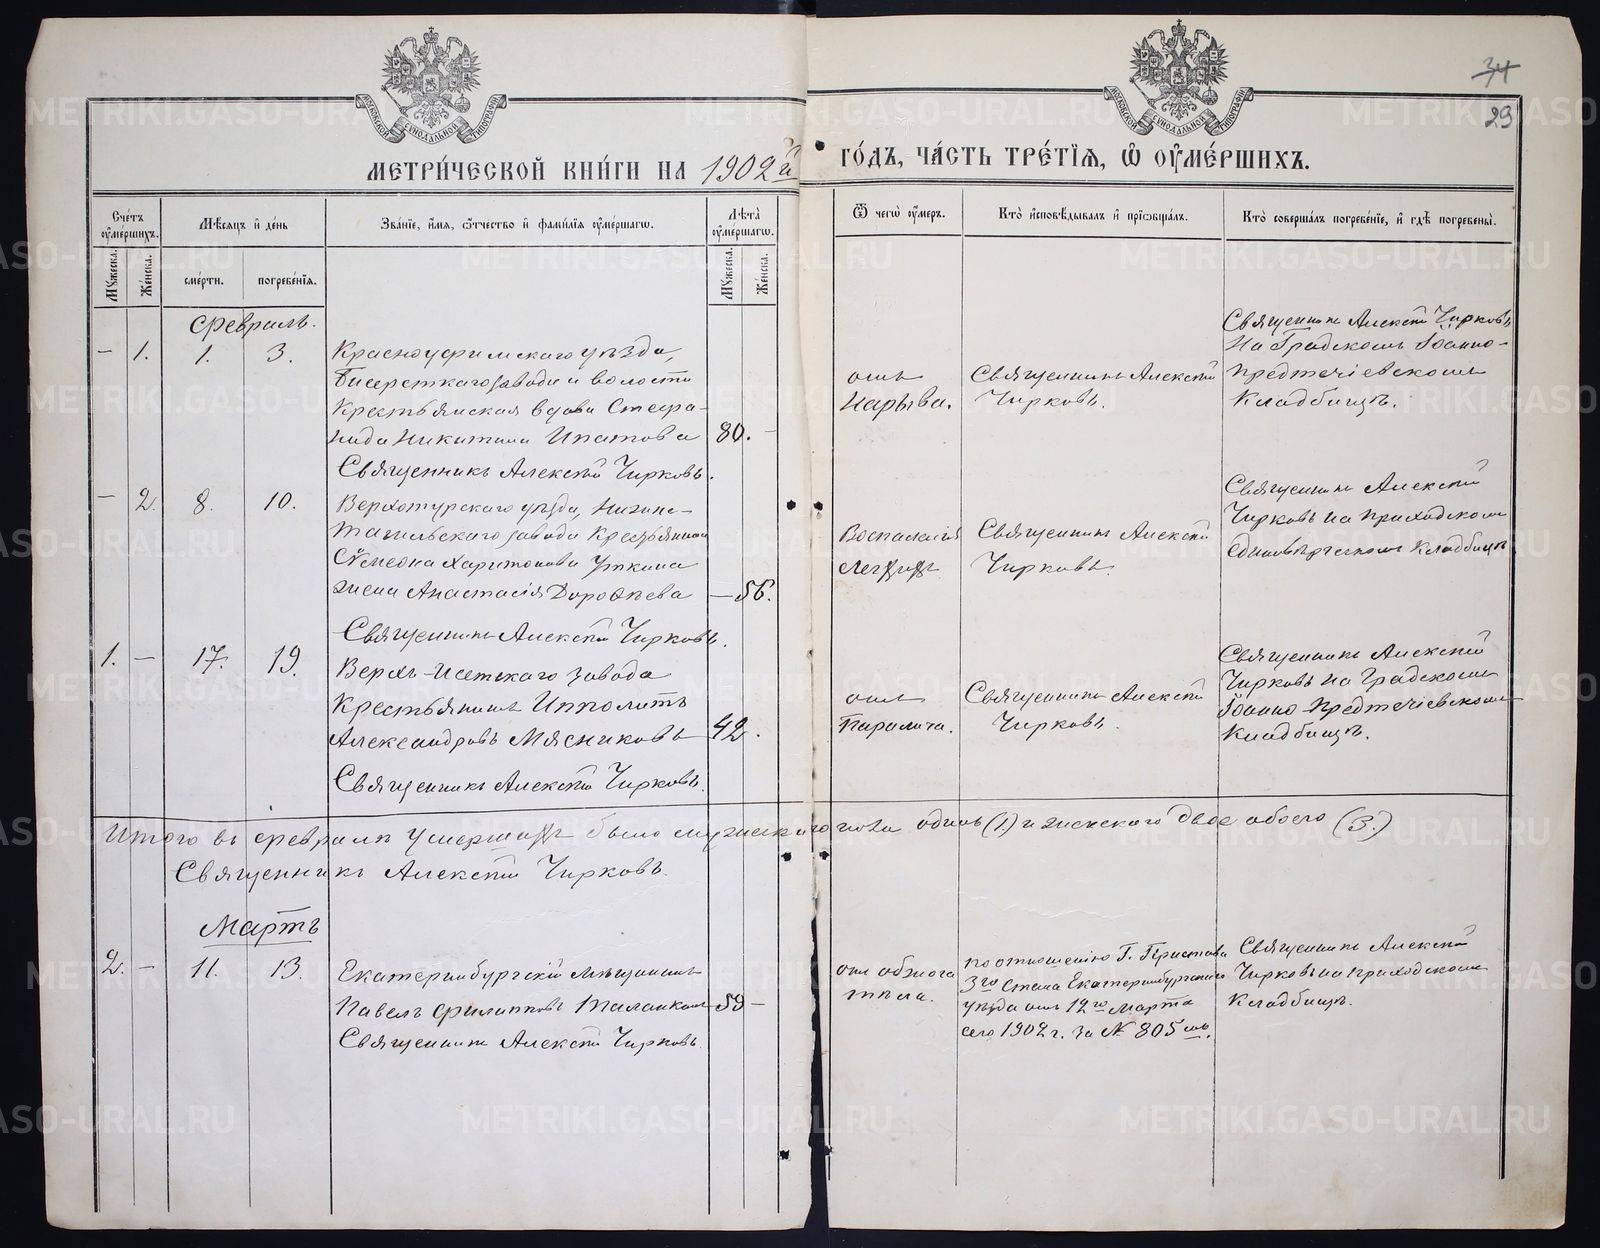 34
29
МЕТРИ́ЧЕСКОЙ КНИ́ГИ НА 1902й ГО́ДЪ, ЧА́СТЬ ТРЕ́ТІѦ, Ѡ ОУМЕ́РШИХЪ.
Сче́тъ оуме́ршихъ.
Мѣ́сѧцъ и де́нь
Зва́ніе, и́мѧ, ѻ҆́тчество и фами́лїѧ оуме́ршагѡ.
Лѣ́та оуме́ршагѡ.
Ѿ чегѡ̀ оу́меръ.
Кто̀ и҆сповѣ́дывалъ и҆ прїѡбща́лъ.
Кто̀ соверша́лъ погребе́нїе, и҆ гдѣ̀ погребены̀.
Мꙋжеска.
Же́нска.
сме́рти.
погребе́нїѧ.
Мꙋжеска.
Же́нска.
Февраль.
— 1. 1. 3.
Красноуфимскаго уѣзда,
Бисертскаго завода и волости
Крестьянская вдова Стефа-
нида Никитина Ипатова 80. —
Священникъ Алексій Чирковъ.
отъ
Нарыва.
Священникъ Алексій
Чирковъ.
Священникъ Алексій Чирковъ
На Градскомъ Іоанно-
Предтечіевскомъ
Кладбищѣ.
— 2. 8. 10.
Верхотурскаго уѣзда, Нижне-
Тагильскаго завода Крестьянина
Сѵмеона Харитонова Уткина
жена Анастасія Дороѳѣева — 56.
Священникъ Алексій Чирковъ.
Воспаленія
Легкихъ
Священникъ Алексій
Чирковъ.
Священникъ Алексій
Чирковъ на приходскомъ
единовѣрческомъ Кладбищѣ
1. — 17. 19.
Верхъ-Исетскаго завода
Крестьянинъ Ипполитъ
Александровъ Мясниковъ 42.
Священникъ Алексій Чирковъ.
отъ
Паралича.
Священникъ Алексій
Чирковъ.
Священникъ Алексій
Чирковъ на Градскомъ
Іоанно-Предтечіевскомъ
Кладбищѣ.
Итого въ февралѣ умершихъ было мужескаго пола одинъ (1.) и женскаго двое обоего (3.)
Священникъ Алексій Чирковъ.
Мартъ
2. — 11. 13.
Екатеринбургскій мѣщанинъ
Павелъ Филипповъ 59 —
Священникъ Алексій Чирковъ.
отъ обжога
тѣла.
по отношенію Г. Пристава
3го Стана Екатеринбургскаго
уѣзда отъ 12го Марта
сего 1902 г. за № 805 мъ.
Священникъ Алексій
Чирковъ на приходскомъ
Кладбищѣ.